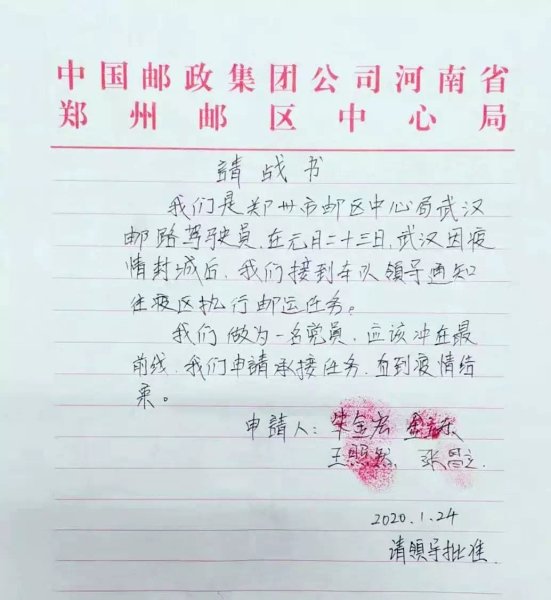 中国邮政集团公司河南省
郑州邮区中心局
請战书
我们是郑州市邮区中心局武汉
邮路驾驶员,在元月二十三日,武汉因疫
情封城后,我们接到车队领导通知
往疫区执行邮运任务。
我们做为一名党员,应该冲在最
前线,我们申請承接任务,直到疫情结
束。
申請人:毕金宏
王照然
2020.1.24
请领导批准.